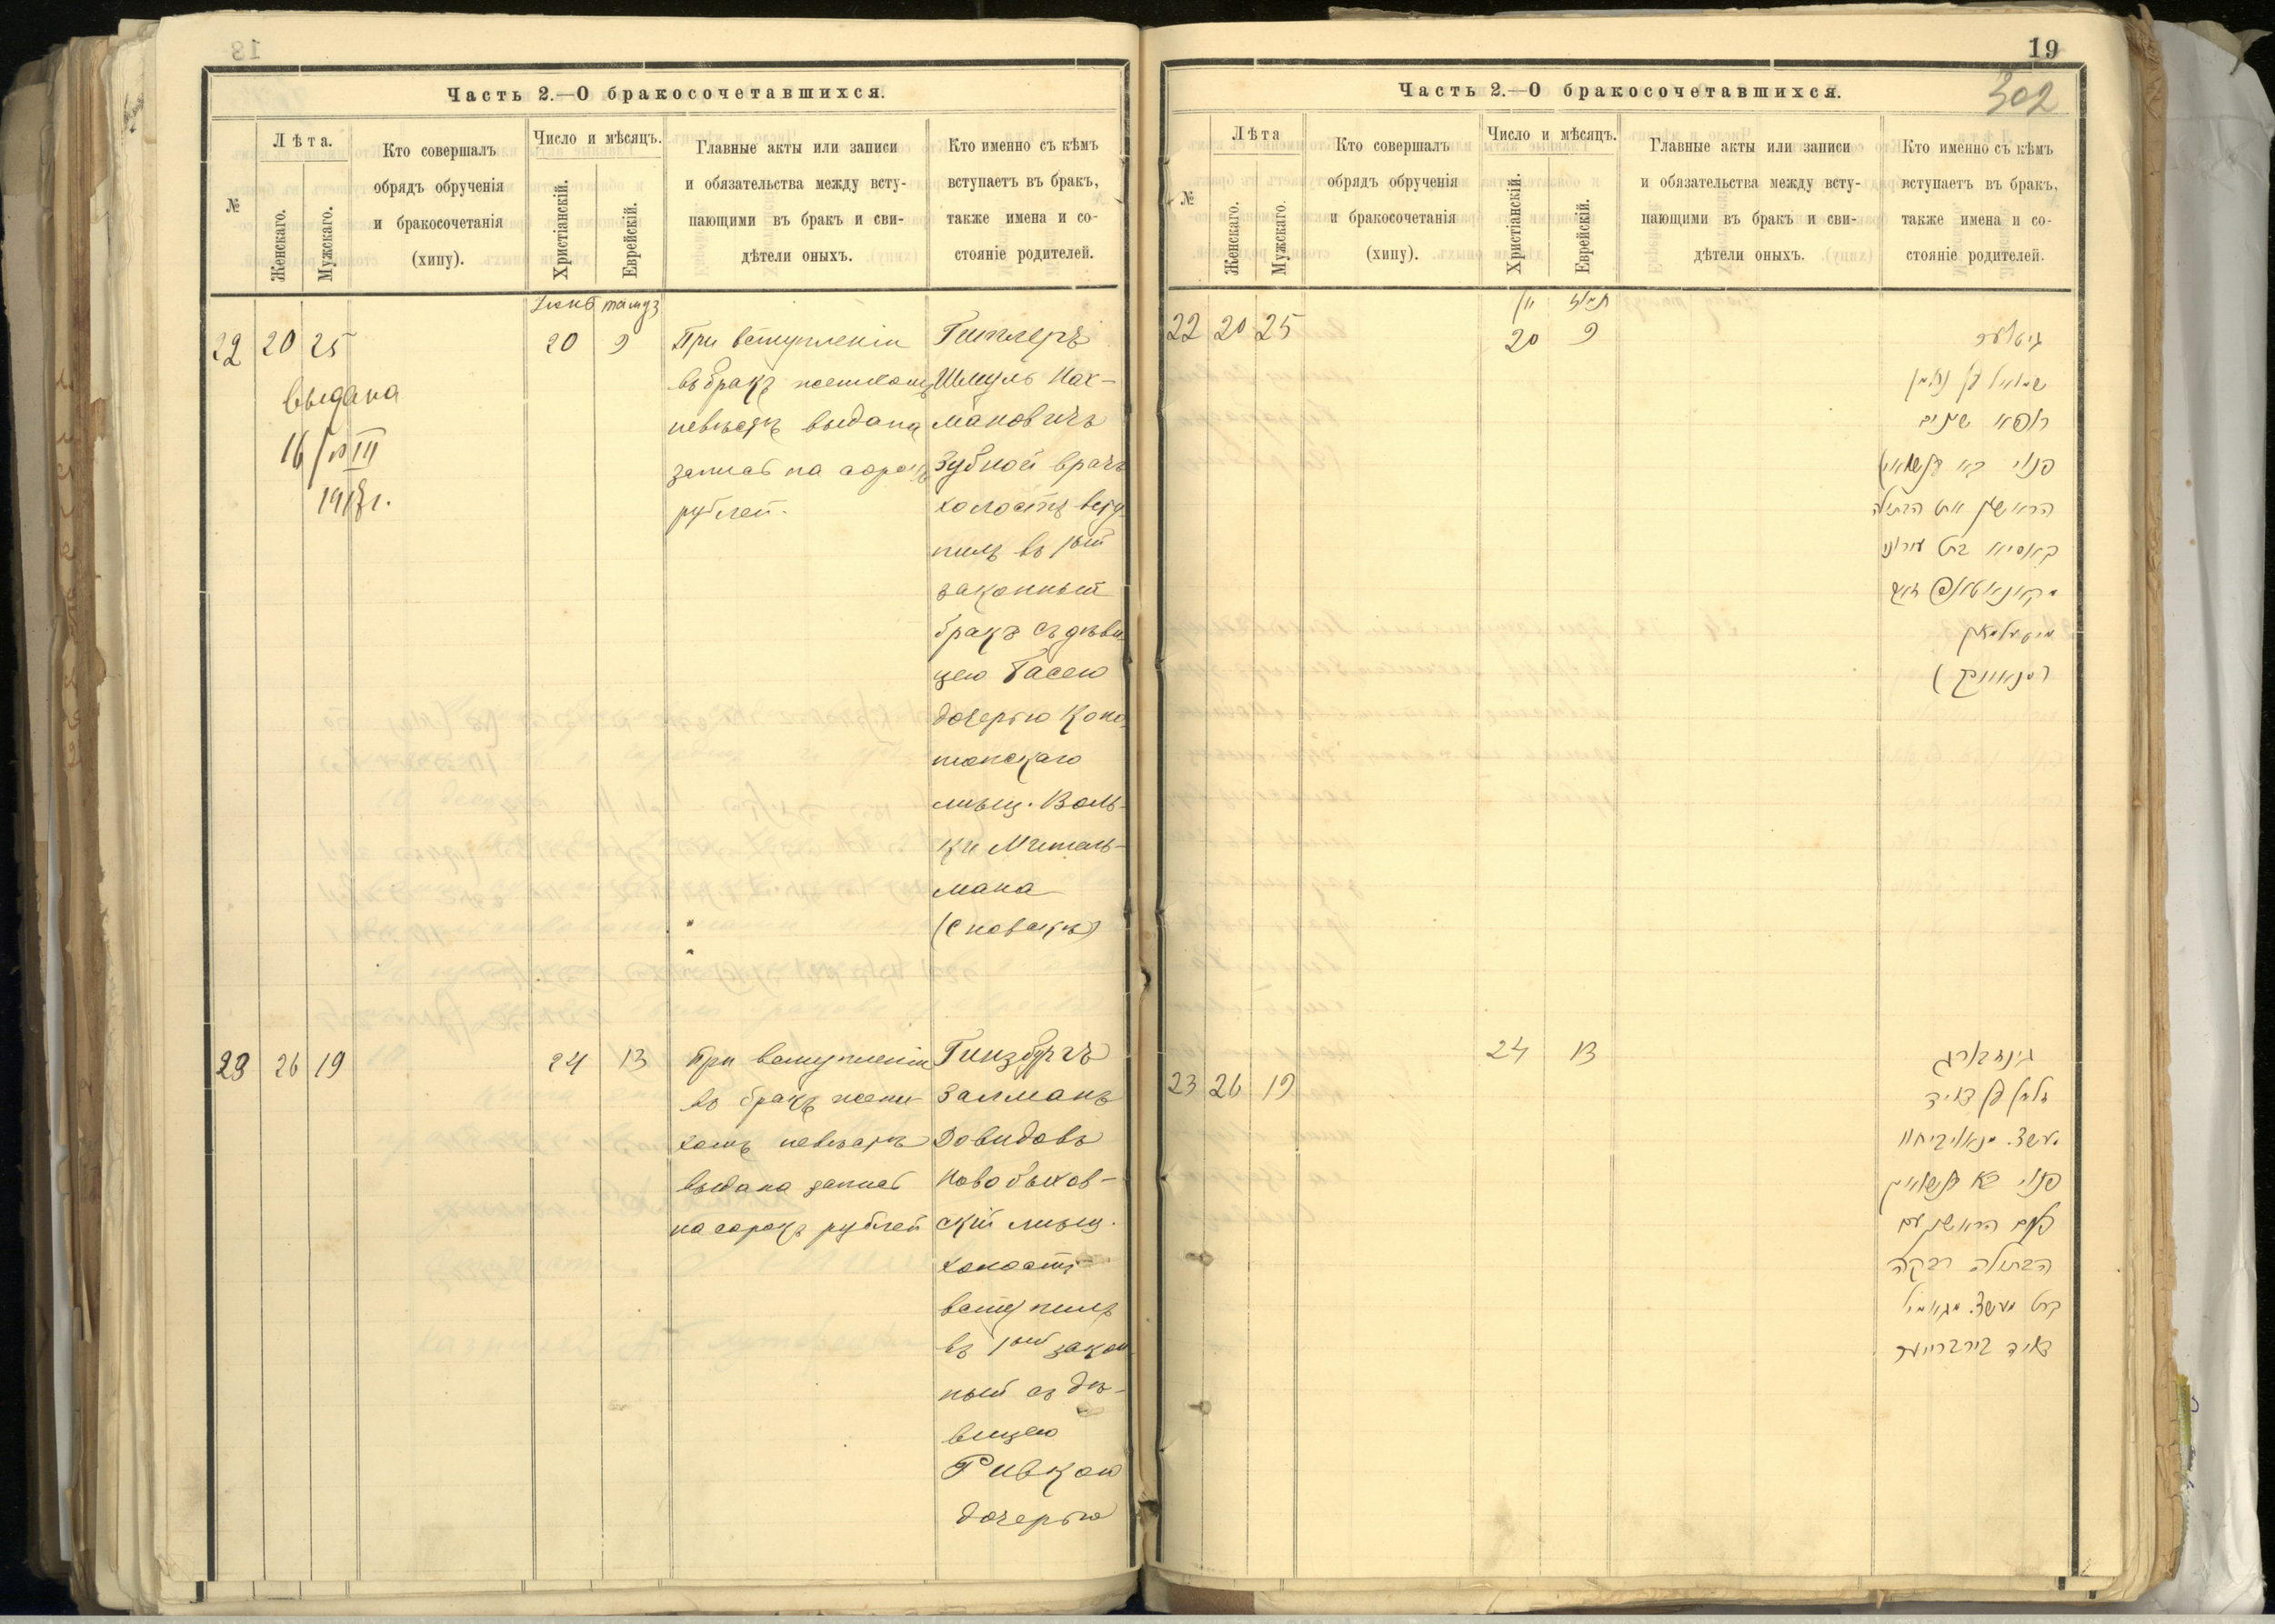 Часть 2.—О бракосочетавшихся.
№
Лѣта.
Женскаго.
Мужскаго.
Кто совершалъ
обрядъ обрученія
и бракосочетанія
(хипу).
Число и мѣсяцъ.
Христіанскій.
Еврейскій.
Главные акты или записи
и обязательства между всту-
пающими въ бракъ и сви-
дѣтели оныхъ.
Кто именно съ кѣмъ
вступаетъ въ бракъ,
также имена и со-
стояніе родителей.
тамуз
22 20 25
20 9
выдана
При вступленіи
въ бракъ женихомъ
невѣстѣ выдана
запись на сорокъ
рублей.
Гитлеръ
Шмуль Нах-
мановичъ
Зубной врачъ
холостъ всту
пилъ въ 1ый
законный
бракъ съ дѣви
цею Басею
дочерью Коно
топскаго
мѣщ. Воль-
ки Митель-
мана
(Сновскъ)
23 26 19
24 13
При вступленіи
въ бракъ жени
хомъ невѣстѣ
выдана запись
на сорокъ рублей
Гинзбургъ
Залманъ
Довидовъ
Новобыхов-
скій мѣщ.
холостъ
вступилъ
въ 1ый закон
ный съ дѣ-
вицею
Ривкою
дочерью
19
302
Часть 2.—О бракосочетавшихся.
№
Лѣта
Женскаго.
Мужскаго.
Кто совершалъ
обрядъ обрученія
и бракосочетанія
(хипу).
Число и мѣсяцъ.
Христіанскій.
Еврейскій.
Главные акты или записи
и обязательства между всту-
пающими въ бракъ и сви-
дѣтели оныхъ.
Кто именно съ кѣмъ
вступаетъ въ бракъ,
также имена и со-
стояніе родителей.
22 20 25
20 9
גיטלער
שמואל בן נחמן
רופא שנים
פנוי בא
הראשון את הבתולה
בת
מיטעלמאן
23 26 19
24 13
גינזבורג
זלמן בן דוד
פנוי בא
הראשון עם
הבתולה רבקה
בת
דוד